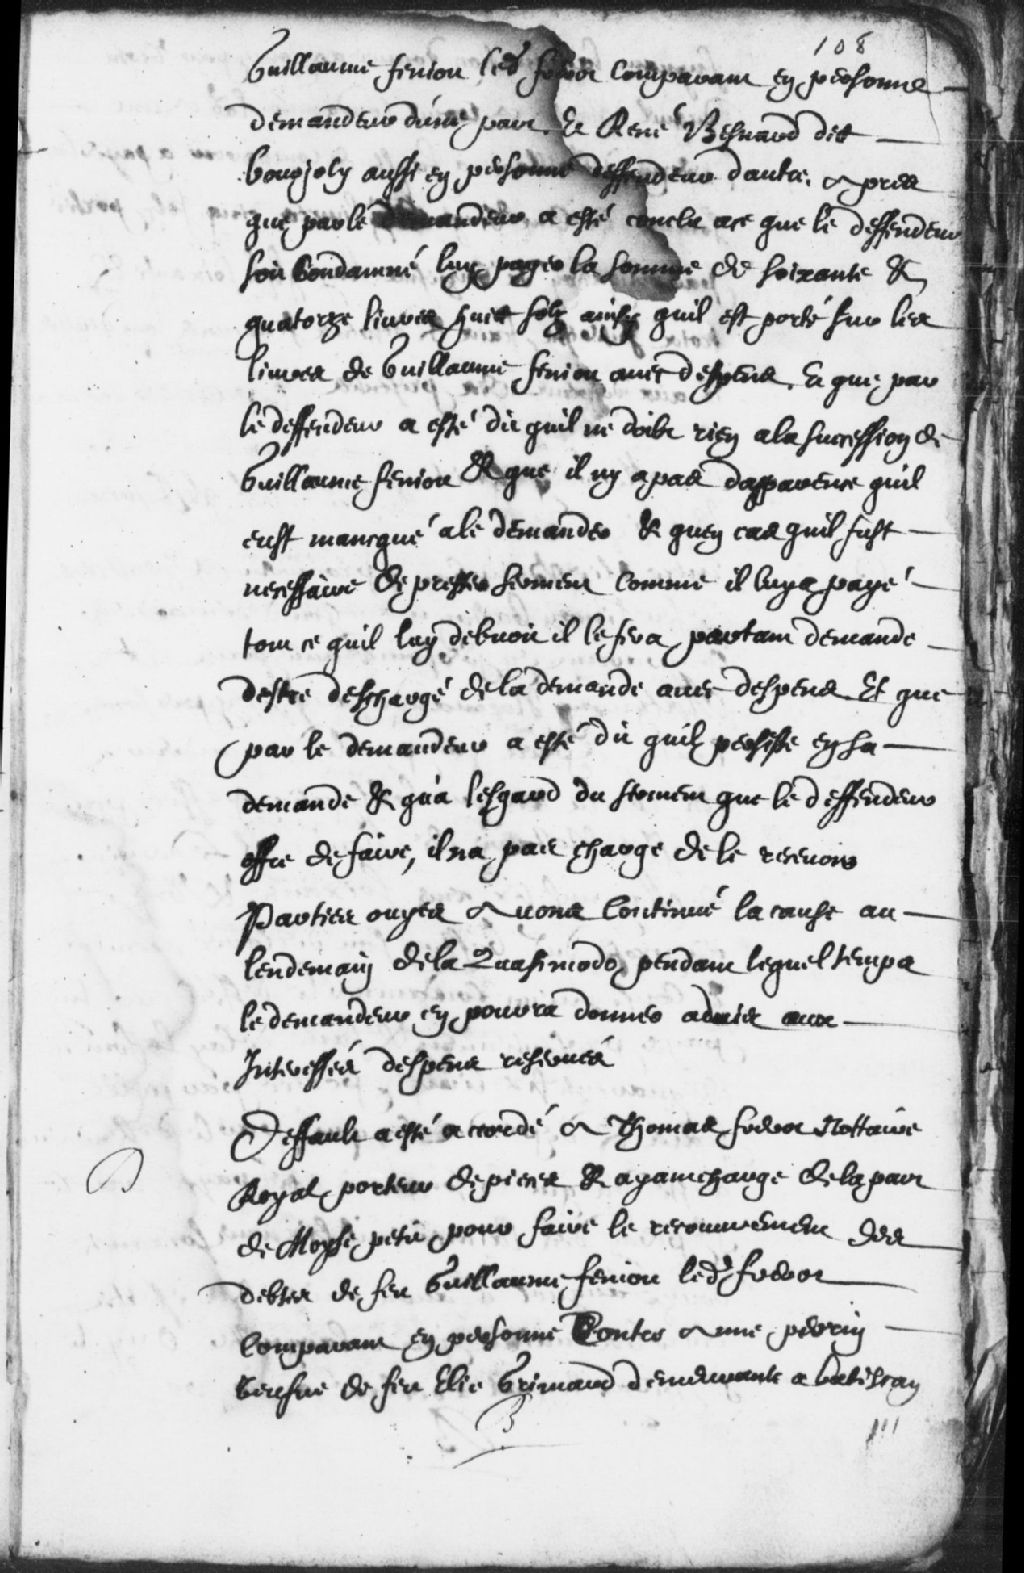 108
Guillaume fenion led. frerot Comparant en personne
demandeur d'une part Et René Besnard dit
bourjoly aussi en personne deffendeur dautre, apres
que par le demandeur a esté conclu ace que le deffendeur
soit Condamné luy payer la somme de soixante &
quatorze livres huit solz ainsy quil est porté sur les
livres de Guillaume fenion avec despens, Et que par
le deffendeur a esté dit quil ne doibt rien a la succession de
Guillaume fenion & que il ny a pas dapparence quil
eust mancqué a le demander & quen cas quil fust
necessaire de prester serment comme il luy a payé
tout ce quil luy debvoit il le fera partant demande
destre deschargé de la demande avec despens Et que
par le demandeur a esté dit quil persiste en sa
demande & qu'a lesgard du serment que le deffendeur
offre de faire, il na pas charge de le recevoir
Parties ouyes avons Continué la cause au
lendemain de la Quasimodo, pendant lequel temps
le demandeur en pourra donner advis aux
Interessés despens reservés
Deffault a esté accordé a Thomas frerot Nottaire
Royal porteur de pieces & ayant charge de la part
de Moyse petit pour faire le recouvrement des
debtes de feu Guillaume fenion led. frerot
Comparant en personne Contre anne perrin
veufve de feu Elie Grimard demeurante a batiscan